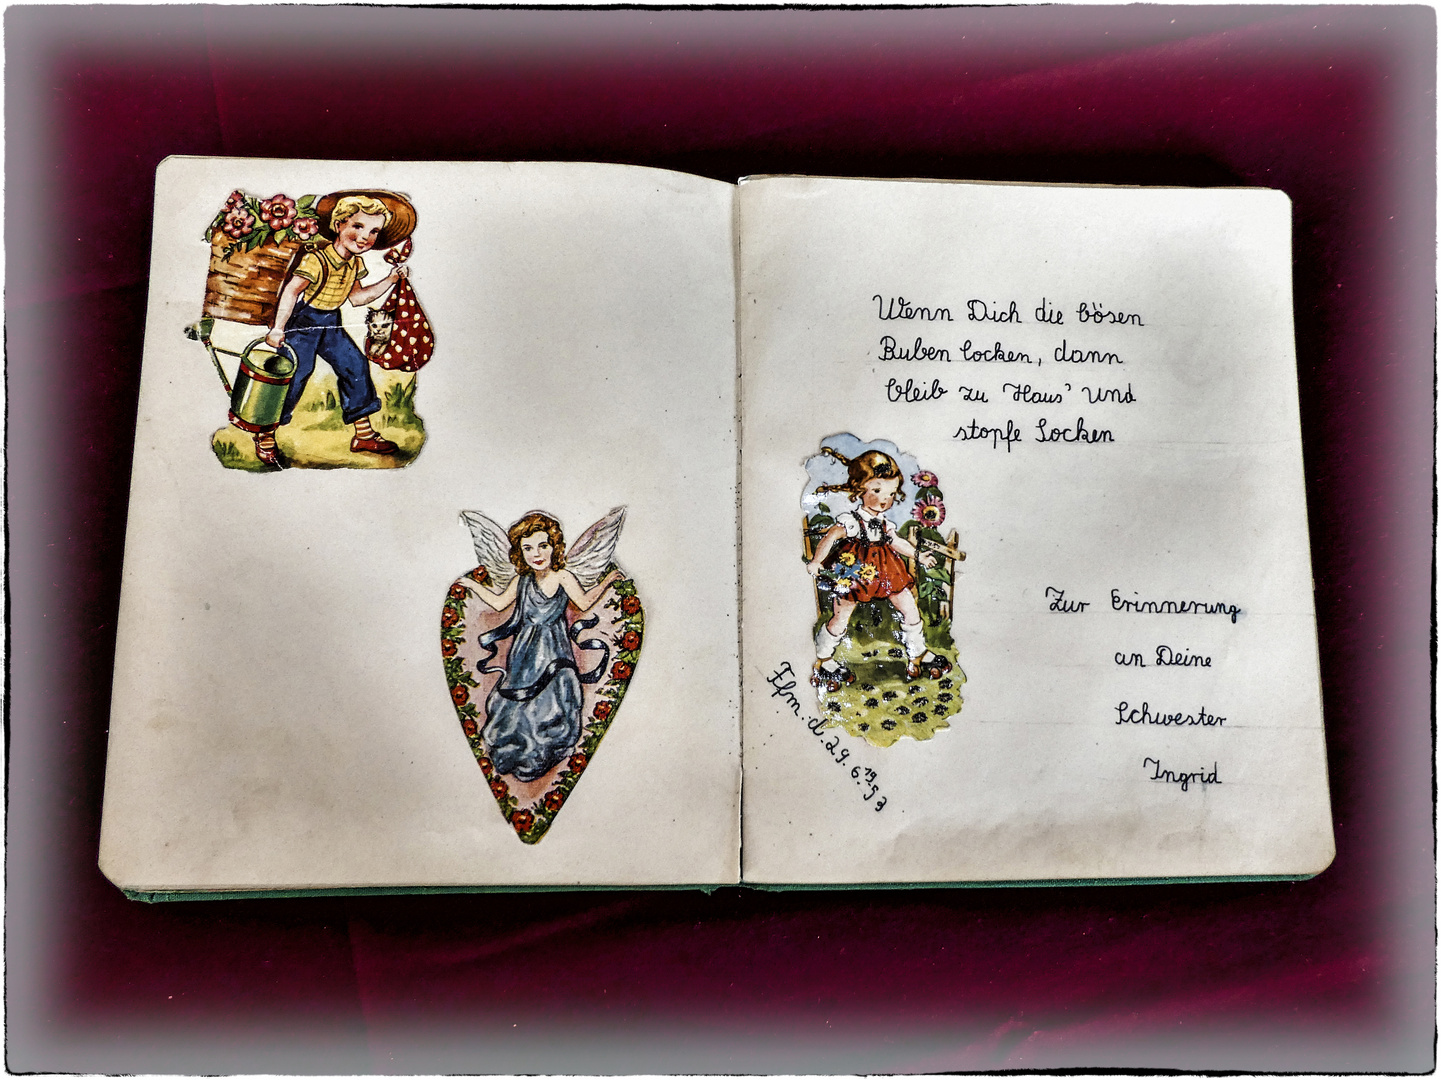 Wenn Dich die bösen
Buben locken, dann
bleib zu Haus' und
stopfe Socken
Zur Erinnerung
an Deine
Schwester
Ingrid
Ffm. d. 29. 6. 1953